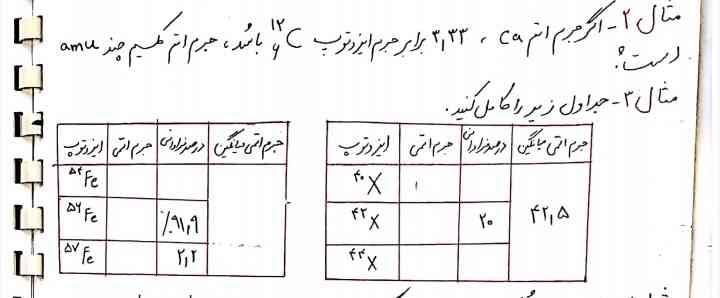 مثال ۲- اگر جرم اتم Ca ، ۳,۳۳ برابر جرم ایزوتوپ ¹²₆C باشد، جرم اتم کلسیم چند amu
است؟
مثال ۳- جداول زیر را کامل کنید.
جرم اتمی میانگین درصد فراوانی جرم اتمی ایزوتوپ
⁴⁰X
۴۲,۵ ۲۰ ⁴²X
⁴⁴X
جرم اتمی میانگین درصد فراوانی جرم اتمی ایزوتوپ
⁵⁴Fe
٪۹۱,۹ ⁵⁶Fe
۲,۲ ⁵⁷Fe